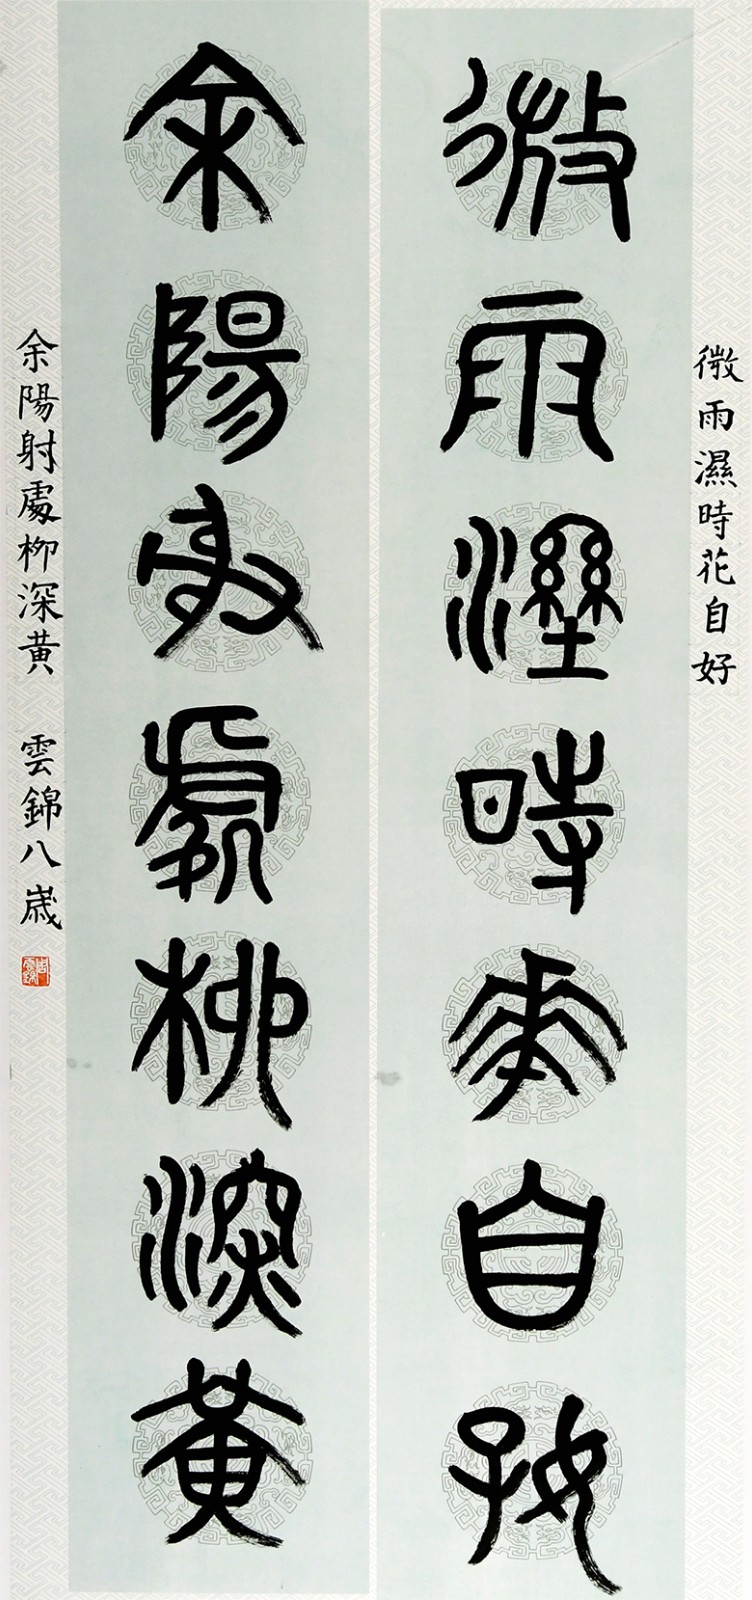 微雨濕時花自好
微雨濕時花自好
余陽射處柳深黄
余陽射處柳深黄 雲錦八歲